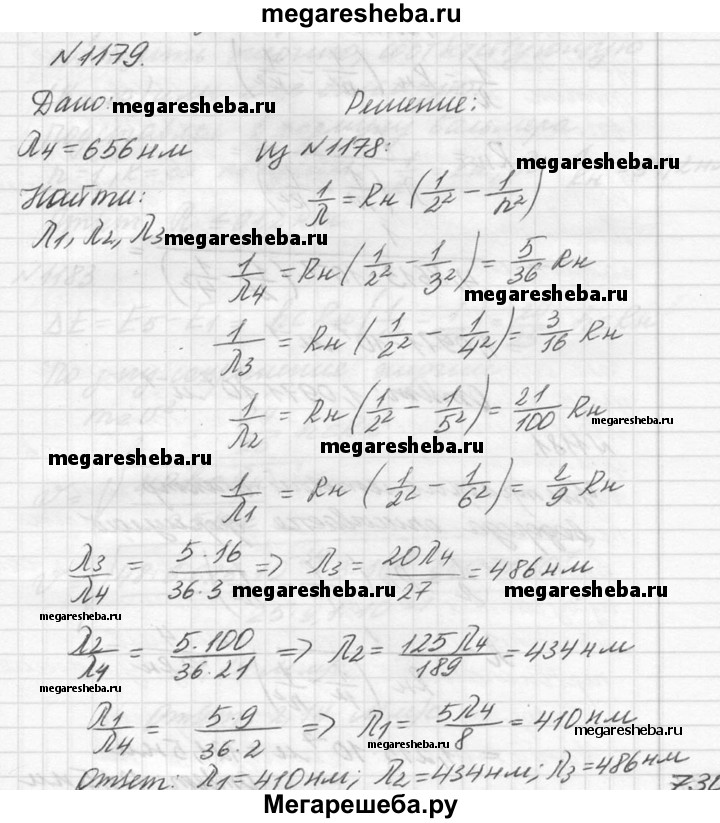 megaresheba.ru
N1179.
Дано: megaresheba.ru Решение:
λ4 = 656 нм из N1178:
Найти: 1/λ = Rн (1/2² − 1/n²)
λ1, λ2, λ3 megaresheba.ru
1/λ4 = Rн (1/2² − 1/3²) = 5/36 Rн
megaresheba.ru
1/λ3 = Rн (1/2² − 1/4²) = 3/16 Rн
1/λ2 = Rн (1/2² − 1/5²) = 21/100 Rн
megaresheba.ru
megaresheba.ru
megaresheba.ru
1/λ1 = Rн (1/2² − 1/6²) = 2/9 Rн
λ3/λ4 = 5·16/36·3 => λ3 = 20λ4/27 = 486 нм
megaresheba.ru megaresheba.ru megaresheba.ru
λ2/λ4 = 5·100/36·21 => λ2 = 125λ4/189 = 434 нм
megaresheba.ru
λ1/λ4 = 5·9/36·2 => λ1 = 5λ4/8 = 410 нм
megaresheba.ru megaresheba.ru
Ответ: λ1 = 410 нм; λ2 = 434 нм; λ3 = 486 нм
Мегарешеба.ру